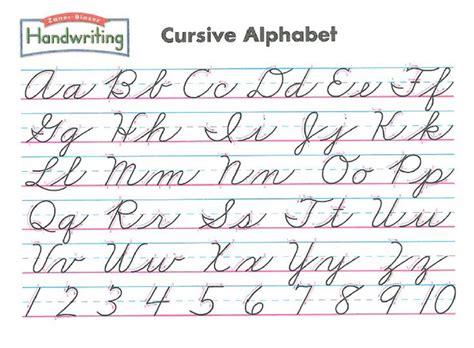 Zaner-Bloser
Handwriting
Cursive Alphabet
Aa Bb Cc Dd Ee Ff
Gg Hh Ii Jj Kk
Ll Mm Nn Oo Pp
Qq Rr Ss Tt Uu
Vv Ww Xx Yy Zz
1 2 3 4 5 6 7 8 9 10